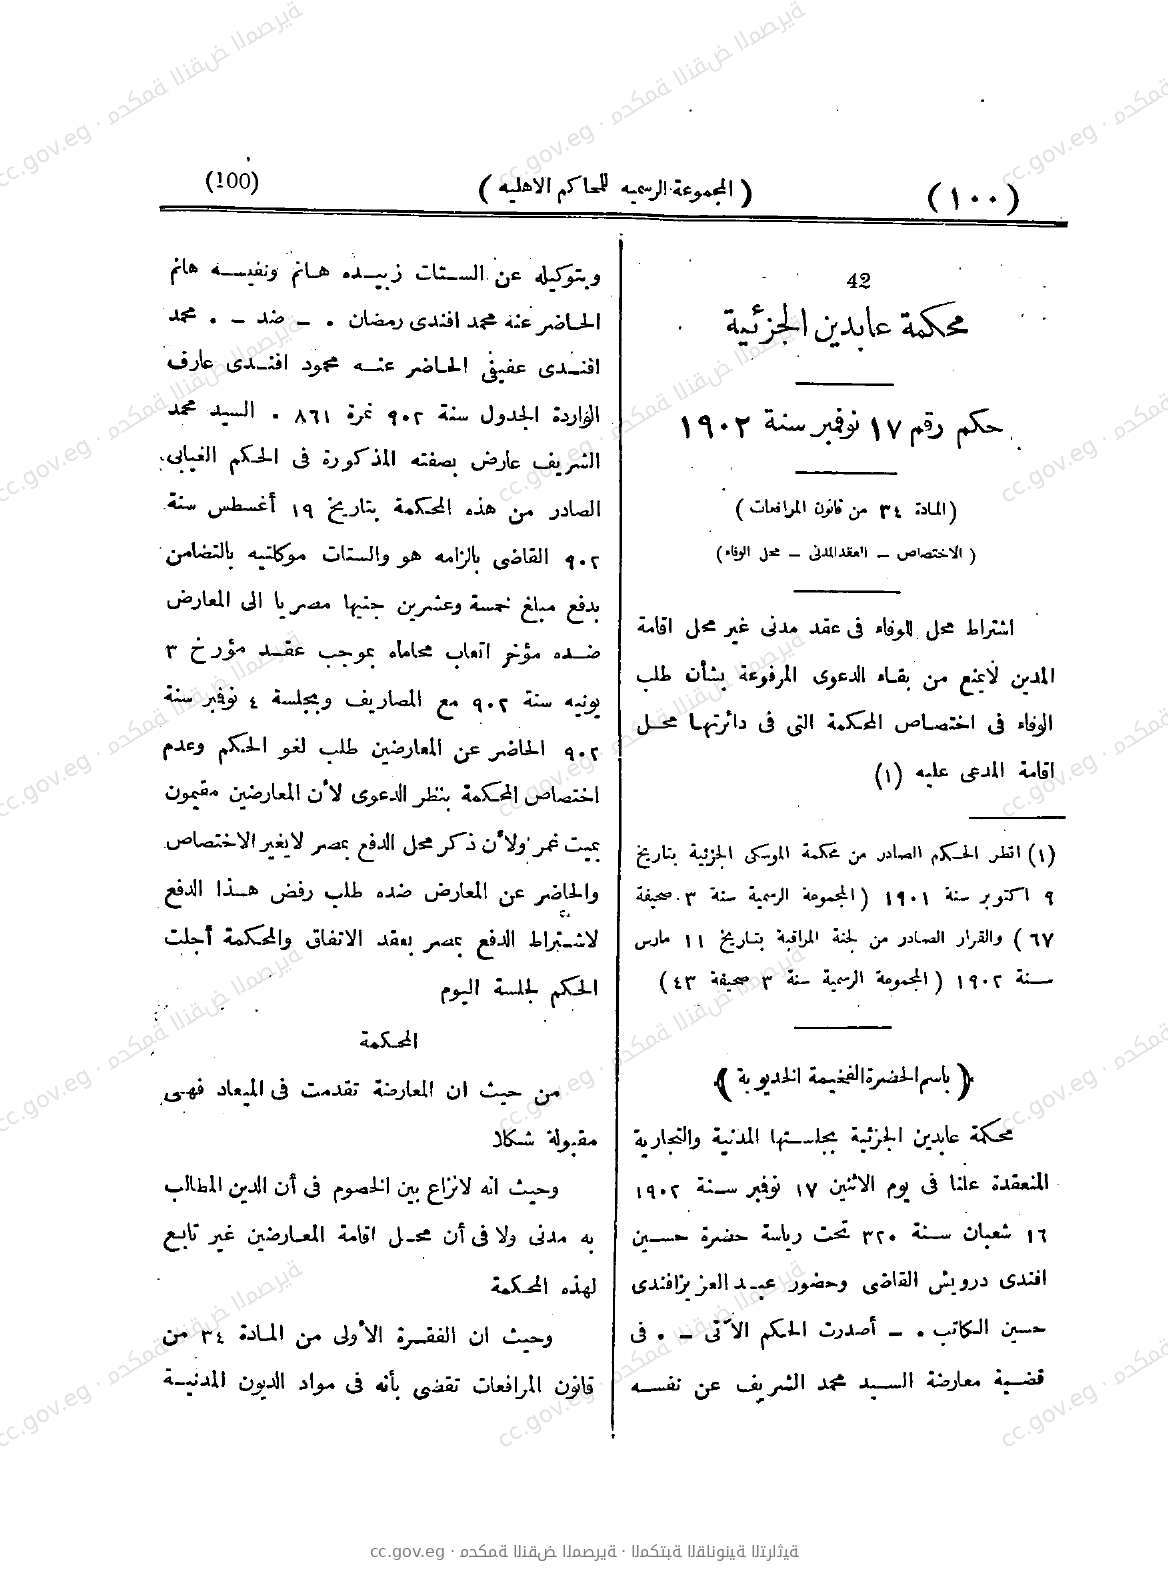 (١٠٠)
( المجموعة الرسميه للمحاكم الاهليه )
(100)
42
محكمة عابدين الجزئية
حكم رقم ١٧ نوفمبر سنة ١٩٠٢
( المادة ٣٤ من قانون المرافعات )
( الاختصاص – العقد المدنى – محل الوفاء )
اشتراط محل للوفاء فى عقد مدنى غير محل اقامة
المدين لايمنع من بقاء الدعوى المرفوعة بشأن طلب
الوفاء فى اختصاص المحكمة التى فى دائرتها محل
اقامة المدعى عليه (١)
(١) انظر الحكم الصادر من محكمة الموسكى الجزئية بتاريخ
٩ اكتوبر سنة ١٩٠١ ( المجموعة الرسمية سنة ٣ صحيفة
٦٧ ) والقرار الصادر من لجنة المراقبة بتاريخ ١١ مارس
سنة ١٩٠٢ ( المجموعة الرسمية سنة ٣ صحيفة ٤٣ )
( باسم الحضرة الفخيمة الخديوية )
محكمة عابدين الجزئية بجلستها المدنية والتجارية
المنعقدة علنا فى يوم الاثنين ١٧ نوفمبر سنة ١٩٠٢
١٦ شعبان سنة ٣٢٠ تحت رياسة حضرة حسين
افندى درويش القاضى وحضور عبد العزيز افندى
حسين الكاتب . – أصدرت الحكم الآتى – . فى
قضية معارضة السيد محمد الشريف عن نفسه
وبتوكيله عن الستات زبيده هانم ونفيسه هانم
الحاضر عنه محمد افندى رمضان . – ضد – . محمد
افندى عفيفى الحاضر عنه محمود افندى عارف
الواردة الجدول سنة ٩٠٢ نمرة ٨٦١ . السيد محمد
الشريف عارض بصفته المذكورة فى الحكم الغيابى
الصادر من هذه المحكمة بتاريخ ١٩ أغسطس سنة
٩٠٢ القاضى بالزامه هو والستات موكلتيه بالتضامن
بدفع مبلغ خمسة وعشرين جنيها مصريا الى المعارض
ضده مؤخر اتعاب محاماه بموجب عقد مؤرخ ٣
يونيه سنة ٩٠٢ مع المصاريف وبجلسة ٤ نوفمبر سنة
٩٠٢ الحاضر عن المعارضين طلب لغو الحكم وعدم
اختصاص المحكمة بنظر الدعوى لأن المعارضين مقيمون
بميت غمر ولأن ذكر محل الدفع بمصر لايغير الاختصاص
والحاضر عن المعارض ضده طلب رفض هذا الدفع
لاشتراط الدفع بمصر بعقد الاتفاق والمحكمة أجلت
الحكم لجلسة اليوم
المحكمة
من حيث ان المعارضة تقدمت فى الميعاد فهى
مقبولة شكلا
وحيث انه لانزاع بين الخصوم فى أن الدين المطالب
به مدنى ولا فى أن محل اقامة المعارضين غير تابع
لهذه المحكمة
وحيث ان الفقرة الأولى من المادة ٣٤ من
قانون المرافعات تقضى بأنه فى مواد الديون المدنية
cc.gov.eg · محكمة النقض المصرية · المكتبة القانونية التراثية